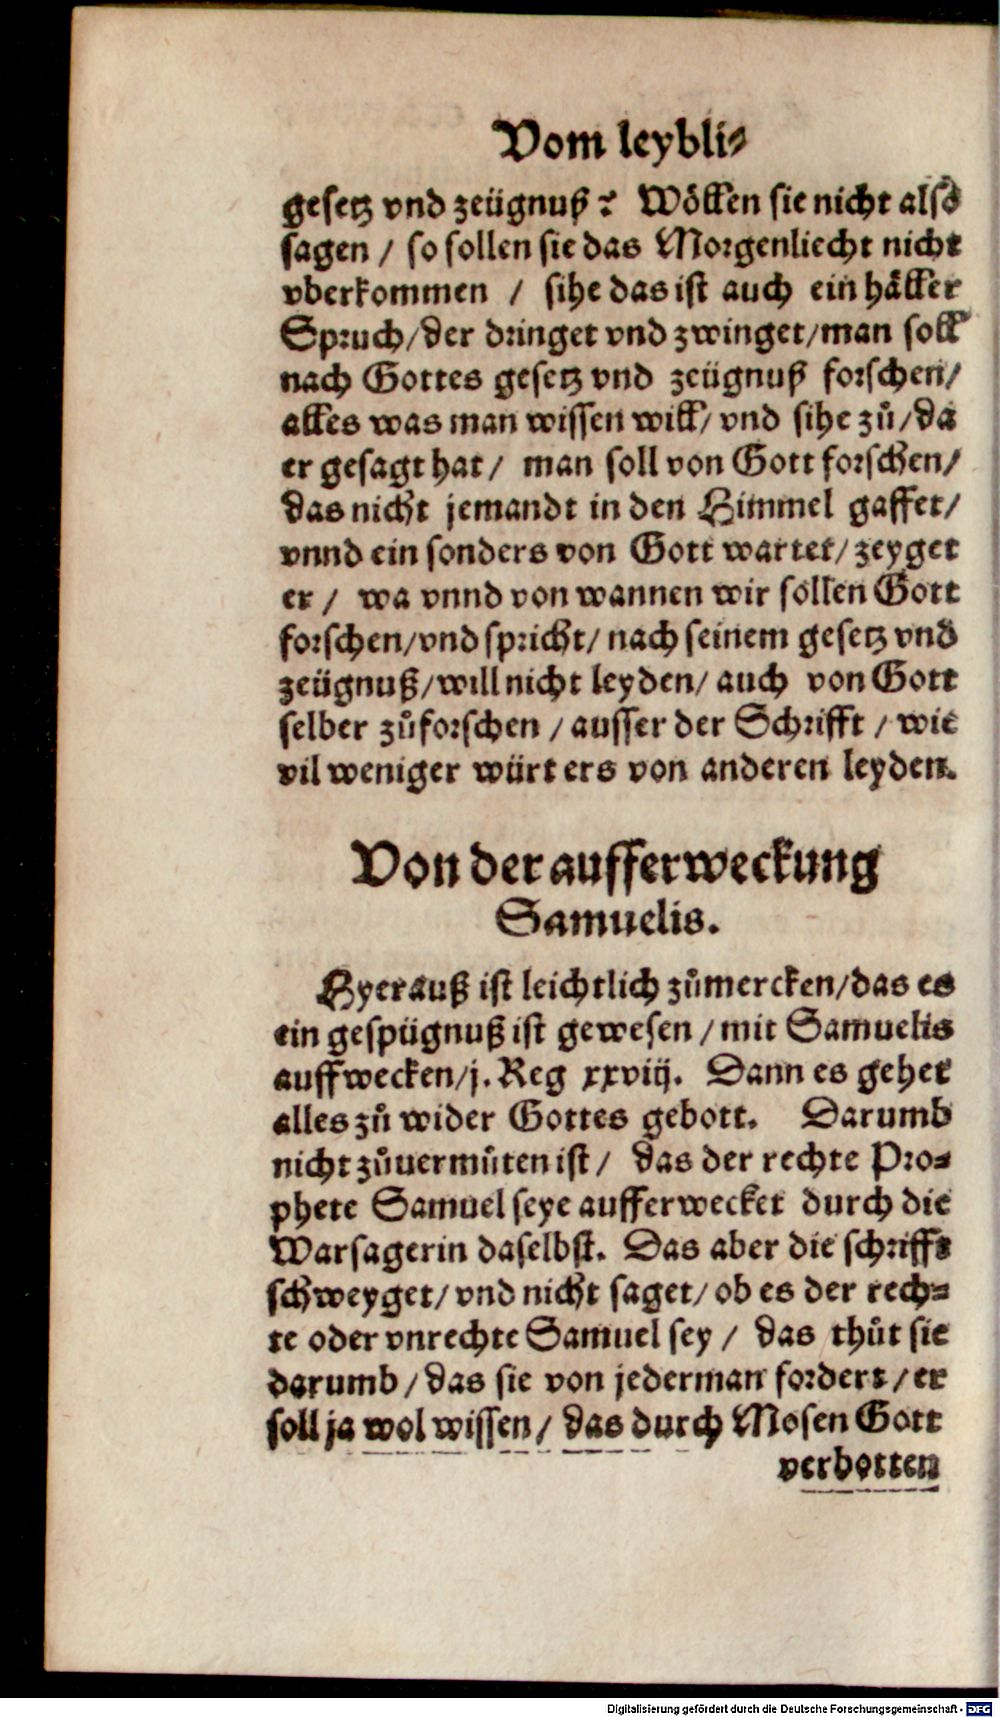 Vom leybli⸗
gesetz vnd zeügnuß? Wöllen sie nicht also
sagen / so sollen sie das Morgenliecht nicht
vberkommen / sihe das ist auch ein häller
Spruch/der dringet vnd zwinget/man soll
nach Gottes gesetz vnd zeügnuß forschen/
alles was man wissen will/ vnd sihe zů/da
er gesagt hat/ man soll von Gott forschen/
das nicht jemandt in den Himmel gaffet/
vnnd ein sonders von Gott wartet/ zeyget
er / wa vnnd von wannen wir sollen Gott
forschen/vnd spricht/ nach seinem gesetz vnd
zeügnuß/will nicht leyden/ auch von Gott
selber zůforschen / ausser der Schrifft / wie
vil weniger würt ers von anderen leyden.
Von der aufferweckung
Samuelis.
Hyerauß ist leichtlich zůmercken/das es
ein gespügnuß ist gewesen / mit Samuelis
auffwecken/j. Reg xxviij. Dann es gehet
alles zů wider Gottes gebott. Darumb
nicht zůuermůten ist/ das der rechte Pro⸗
phete Samuel seye aufferwecket durch die
Warsagerin daselbst. Das aber die schrifft
schweyget/ vnd nicht saget/ ob es der rech⸗
te oder vnrechte Samuel sey / das thůt sie
darumb / das sie von jederman fordert / er
soll ja wol wissen / das durch Mosen Gott
verbotten
Digitalisierung gefördert durch die Deutsche Forschungsgemeinschaft - DFG